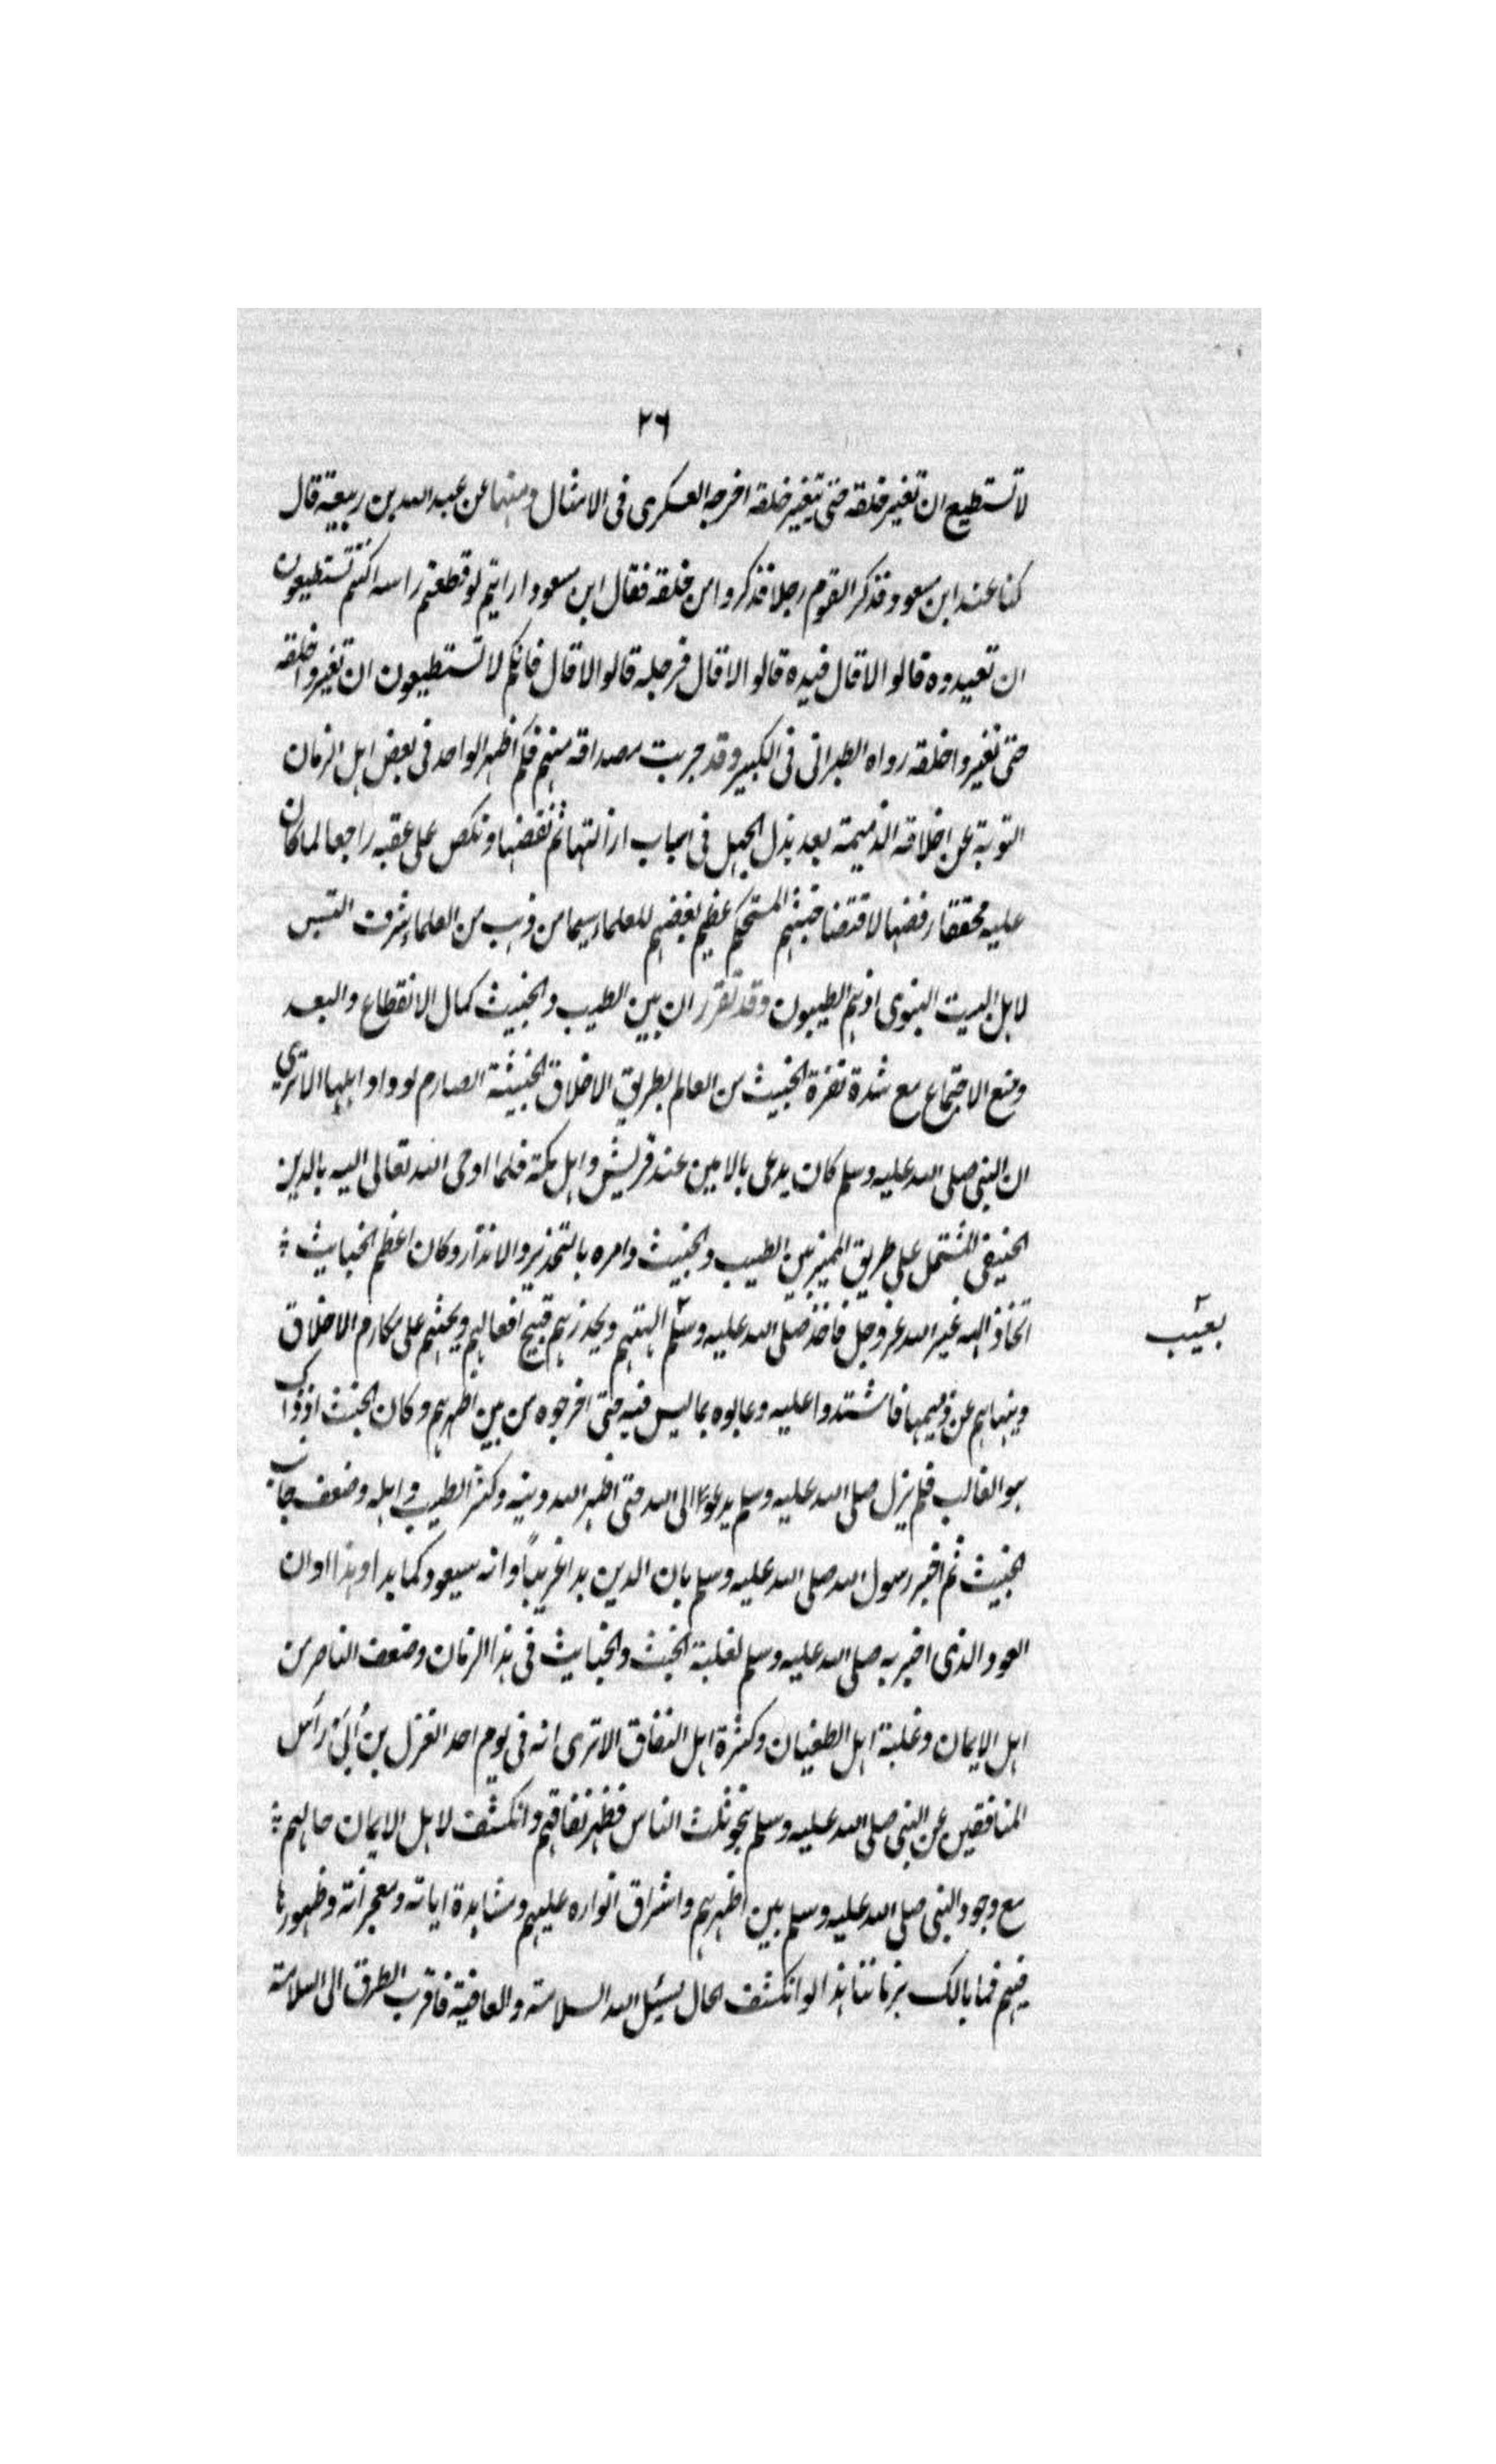 ٢٦
لا تستطيع ان تغير خلقه حتى يتغير خلقه اخرجه العسكرى فى الامثال ومنها عن عبد الله بن ربيعة قال
كنا عند ابن مسعود فذكر القوم رجلا فذكروا من خلقه فقال ابن مسعود ارايتم لو قطعتم راسه اكنتم تستطيعون
ان تعيدوه قالوا لا قال فيده قالوا لا قال فرجله قالوا لا قال فانكم لا تستطيعون ان تغيروا خلقه
حتى تغيروا خلقه رواه الطبرانى فى الكبير وقد جربت مصداقه منهم فكم اظهر الواحد فى بعض اهل الزمان
التوبة عن اخلاقه الذميمة بعد بذل الجهل فى اسباب ازالتها ثم نقضها ونكص على عقبه راجعا لما كان
عليه محققا رفضها لاقتضا خبثهم المستحكم عظيم بغضهم للعلماء سيما من ذهب من العلماء بشرف النسب
لاهل البيت النبوى اذ هم الطيبون وقد تقرر ان بين الطيب والخبيث كمال الانقطاع والبعد
ومنع الاجتماع مع شدة نفرة الخبيث من العالم بطريق الاخلاق الخبيثة الصارم لو واو اهلها الا ترى
ان النبى صلى الله عليه وسلم كان يدعى بالامين عند قريش واهل مكة فلما اوحى الله تعالى اليه بالدين
الحنيفى المشتمل على طريق المميز بين الطيب والخبيث وامره بالتحذير والانذار وكان اعظم الخبايث
اتخاذ اله غير الله عز وجل فاخذ صلى الله عليه وسلم ٢ الهتهم ويحذرهم قبيح افعالهم ويحثهم على مكارم الاخلاق
٢ بعيب
وينهاهم عن ذميمها فاشتدوا عليه وعابوه بما ليس فيه حتى اخرجوه من بين اظهرهم وكان الخبث اذ ذاك
هو الغالب فلم يزل صلى الله عليه وسلم يدعو الى الله حتى اظهر الله دينه وكثر الطيب واهله وضعف جانب
الخبيث ثم اخبر رسول الله صلى الله عليه وسلم بان الدين بدا غريبًا وانه سيعود كما بدا وهذا اوان
العود الذى اخبر به صلى الله عليه وسلم لغلبة الخبث والخبايث فى هذا الزمان وضعف الناصر من
اهل الايمان وغلبة اهل الطغيان وكثرة اهل النفاق الا ترى انه فى يوم احد انعزل بن اُبَىّ راس
المنافقين عن النبى صلى الله عليه وسلم بنحو ثلث الناس فظهر نفاقهم وانكشف لاهل الايمان حالهم
مع وجود النبى صلى الله عليه وسلم بين اظهرهم واشراق انواره عليهم ومشاهدة اياته ومعجزاته وظهورها
فيهم فما بالك بزماننا هذا لو انكشف الحال يسئل الله السلامة والعافية فاقرب الطرق الى السلامة